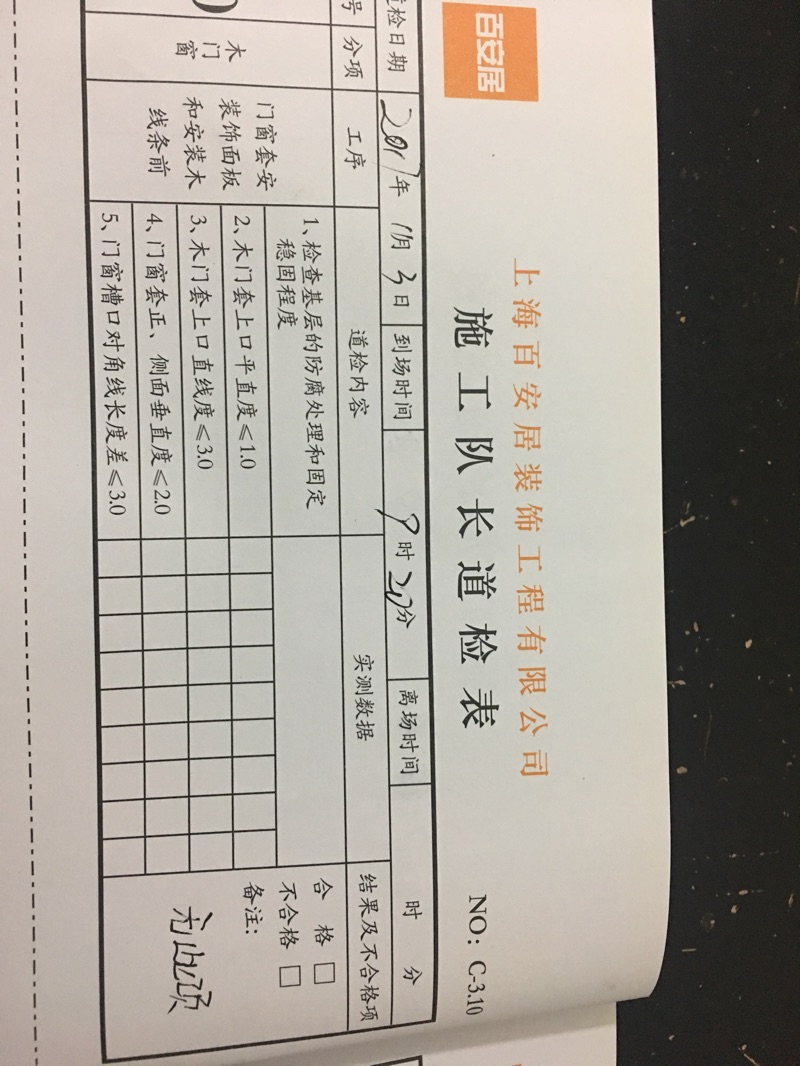 百安居
上海百安居装饰工程有限公司
施工队长道检表
NO：C-3.10
道检日期 2017年11月3日 到场时间 9时20分 离场时间 时 分
号 分项 工序 道检内容 实测数据 结果及不合格项
木门窗
门窗套安
装饰面板
和安装木
线条前
1、检查基层的防腐处理和固定
稳固程度
2、木门套上口平直度≤1.0
3、木门套上口直线度≤3.0
4、门窗套正、侧面垂直度≤2.0
5、门窗槽口对角线长度差≤3.0
合 格 □
不合格 □
备注：